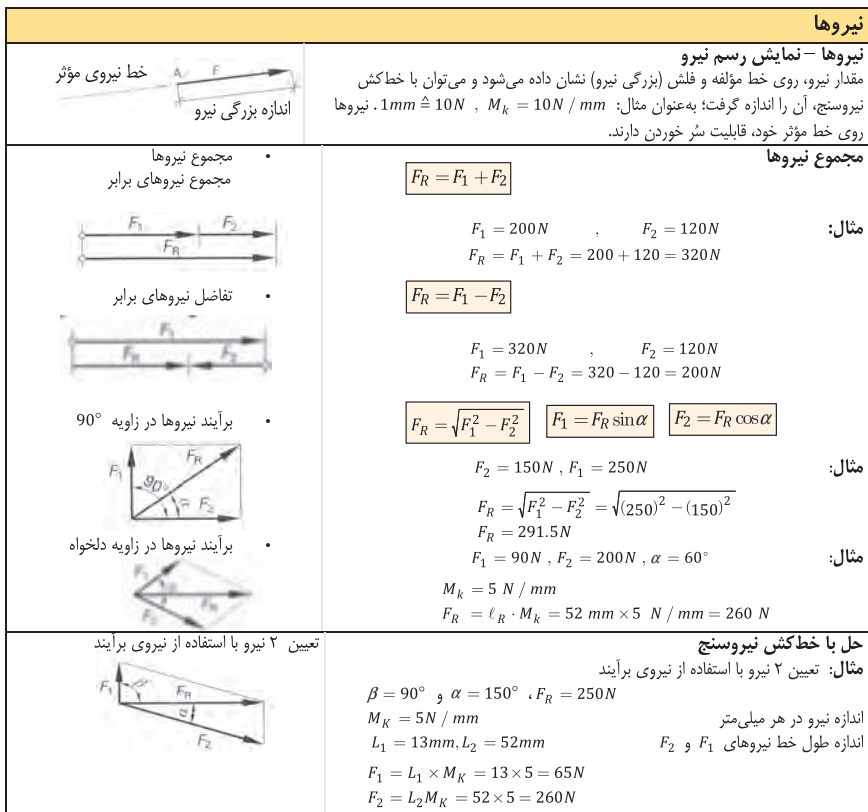 نیروها
نیروها – نمایش رسم نیرو
مقدار نیرو، روی خط مؤلفه و فلش (بزرگی نیرو) نشان داده می‌شود و می‌توان با خط‌کش
نیروسنج، آن را اندازه گرفت؛ به‌عنوان مثال: 1mm ≙ 10N , M_k = 10N / mm . نیروها
روی خط مؤثر خود، قابلیت سُر خوردن دارند.
خط نیروی مؤثر
A F
اندازه بزرگی نیرو
مجموع نیروها
F_R = F_1 + F_2
مثال: F_1 = 200N , F_2 = 120N
F_R = F_1 + F_2 = 200 + 120 = 320N
F_R = F_1 − F_2
F_1 = 320N , F_2 = 120N
F_R = F_1 − F_2 = 320 − 120 = 200N
F_R = √(F_1^2 − F_2^2) F_1 = F_R sin α F_2 = F_R cos α
مثال: F_2 = 150N , F_1 = 250N
F_R = √(F_1^2 − F_2^2) = √((250)^2 − (150)^2)
F_R = 291.5N
مثال: F_1 = 90N , F_2 = 200N , α = 60°
M_k = 5 N / mm
F_R = ℓ_R · M_k = 52 mm × 5 N / mm = 260 N
• مجموع نیروها
مجموع نیروهای برابر
F_1 F_2
F_R
• تفاضل نیروهای برابر
F_1
F_R F_2
• برآیند نیروها در زاویه 90°
F_1 F_R
90° F_2
• برآیند نیروها در زاویه دلخواه
F_1
F_R
F_2
حل با خط‌کش نیروسنج
مثال: تعیین ۲ نیرو با استفاده از نیروی برآیند
β = 90° و α = 150° ، F_R = 250N
اندازه نیرو در هر میلی‌متر M_K = 5N / mm
اندازه طول خط نیروهای F_1 و F_2 L_1 = 13mm, L_2 = 52mm
F_1 = L_1 × M_K = 13 × 5 = 65N
F_2 = L_2 M_K = 52 × 5 = 260N
تعیین ۲ نیرو با استفاده از نیروی برآیند
F_1 β F_R
α
F_2